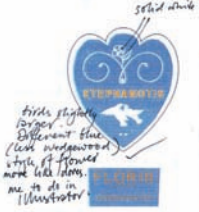 solid white
STEPHANOTIS
birds slightly
larger.
Different blue
(less wedgewood)
style of flower
more like
me to do in
Illustrator.
FLORIS